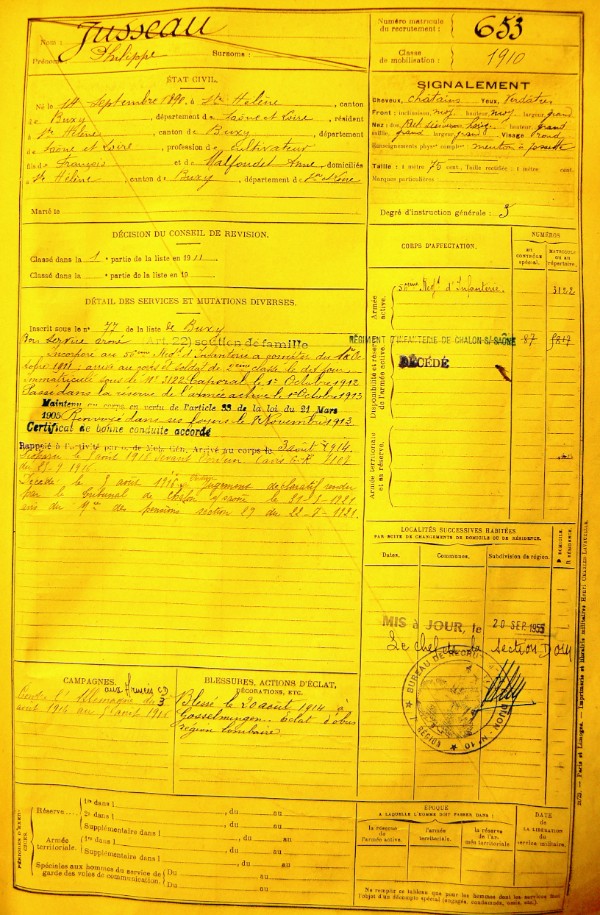 Nom : Jusseau
Prénoms : Philippe Surnoms :
Numéro matricule
du recrutement : 653
Classe
de mobilisation : 1910
ÉTAT CIVIL.
Né le 14 Septembre 1890, à Ste Hélène, canton
de Buxy, département de Saône et Loire, résident
à Ste Hélène, canton de Buxy, département
de Saône et Loire, profession de Cultivateur
fils de François et de Malfondet Anne, domiciliés
à Ste Hélène, canton de Buxy, département de
Marié le
SIGNALEMENT
Cheveux, chatains Yeux, verdatres
Front : inclinaison, moy hauteur, moy largeur, grand
Nez : dos Rect hauteur, grand
saillie, grand largeur, grand Visage rond
Renseignements physion. compl. menton à fossette
Taille : 1 mètre 75 cent. Taille rectifiée : 1 mètre cent.
Marques particulières
Degré d'instruction générale : 3
DÉCISION DU CONSEIL DE REVISION.
Classé dans la 1 e partie de la liste en 1911
Classé dans la e partie de la liste en 19
CORPS D'AFFECTATION.
NUMÉROS
au contrôle spécial.
matricule ou au répertoire.
Armée active.
56ème Régt d'Infanterie. 3122
Disponibilité et réserve de l'armée active.
RÉGIMENT D'INFANTERIE DE CHALON S/ SAÔNE 87
DÉCÉDÉ
Armée territoriale et sa réserve.
DÉTAIL DES SERVICES ET MUTATIONS DIVERSES.
Inscrit sous le n° 77 de la liste de Buxy
Bon service armé Art. 22) soutien de famille
Incorporé au 56ème Régt d'Infanterie à compter du
1911 ; arrivé au corps et soldat de 2ème classe le dit jour,
immatriculé sous le N° 3122 Caporal le 1er Octobre 1912
Passé dans la réserve de l'armée active le 1er Octobre 1913
Maintenu au corps en vertu de l'article 33 de la loi du 21 Mars
1905 Renvoyé dans ses foyers le 8 Novembre 1913
Certificat de bonne conduite accordé
Rappelé à l'activité par Arrivé au corps le 3 août 1914.
Disparu le
du
Décédé le août 1916 jugement déclaratif rendu
par le tribunal de Chalon s/ Saône le
avis du des pensions section
LOCALITÉS SUCCESSIVES HABITÉES
PAR SUITE DE CHANGEMENTS DE DOMICILE OU DE RÉSIDENCE.
Dates. Communes. Subdivision de région. D. DOMICILE. R. RÉSIDENCE.
MIS à JOUR, le 20 SEP. 1955
Le chef de la section
BUREAU DE
CAMPAGNES.
aux armées
Contre l'Allemagne du 3
BLESSURES, ACTIONS D'ÉCLAT,
DÉCORATIONS, ETC.
Blessé le 20 août 1914 à
Gosselmingen. Eclat d'obus
région lombaire
Réserve
1re dans l , du au
2e dans l , du au
Supplémentaire dans l , du au
Armée territoriale.
1re dans l , du au
Supplémentaire dans l , du au
Spéciales aux hommes du service de
garde des voies de communication.
Du au
Du au
ÉPOQUE
A LAQUELLE L'HOMME DOIT PASSER DANS :
la réserve de l'armée active.
l'armée territoriale.
la réserve de l'armée territoriale
DATE
de la LIBÉRATION du service militaire.
Ne remplir ce tableau que pour les hommes dont les services sont
l'objet d'un décompte spécial (engagés, condamnés, omis, etc.).
Paris et Limoges. — Imprimerie et librairie militaires Henri CHARLES-LAVAUZELLE.